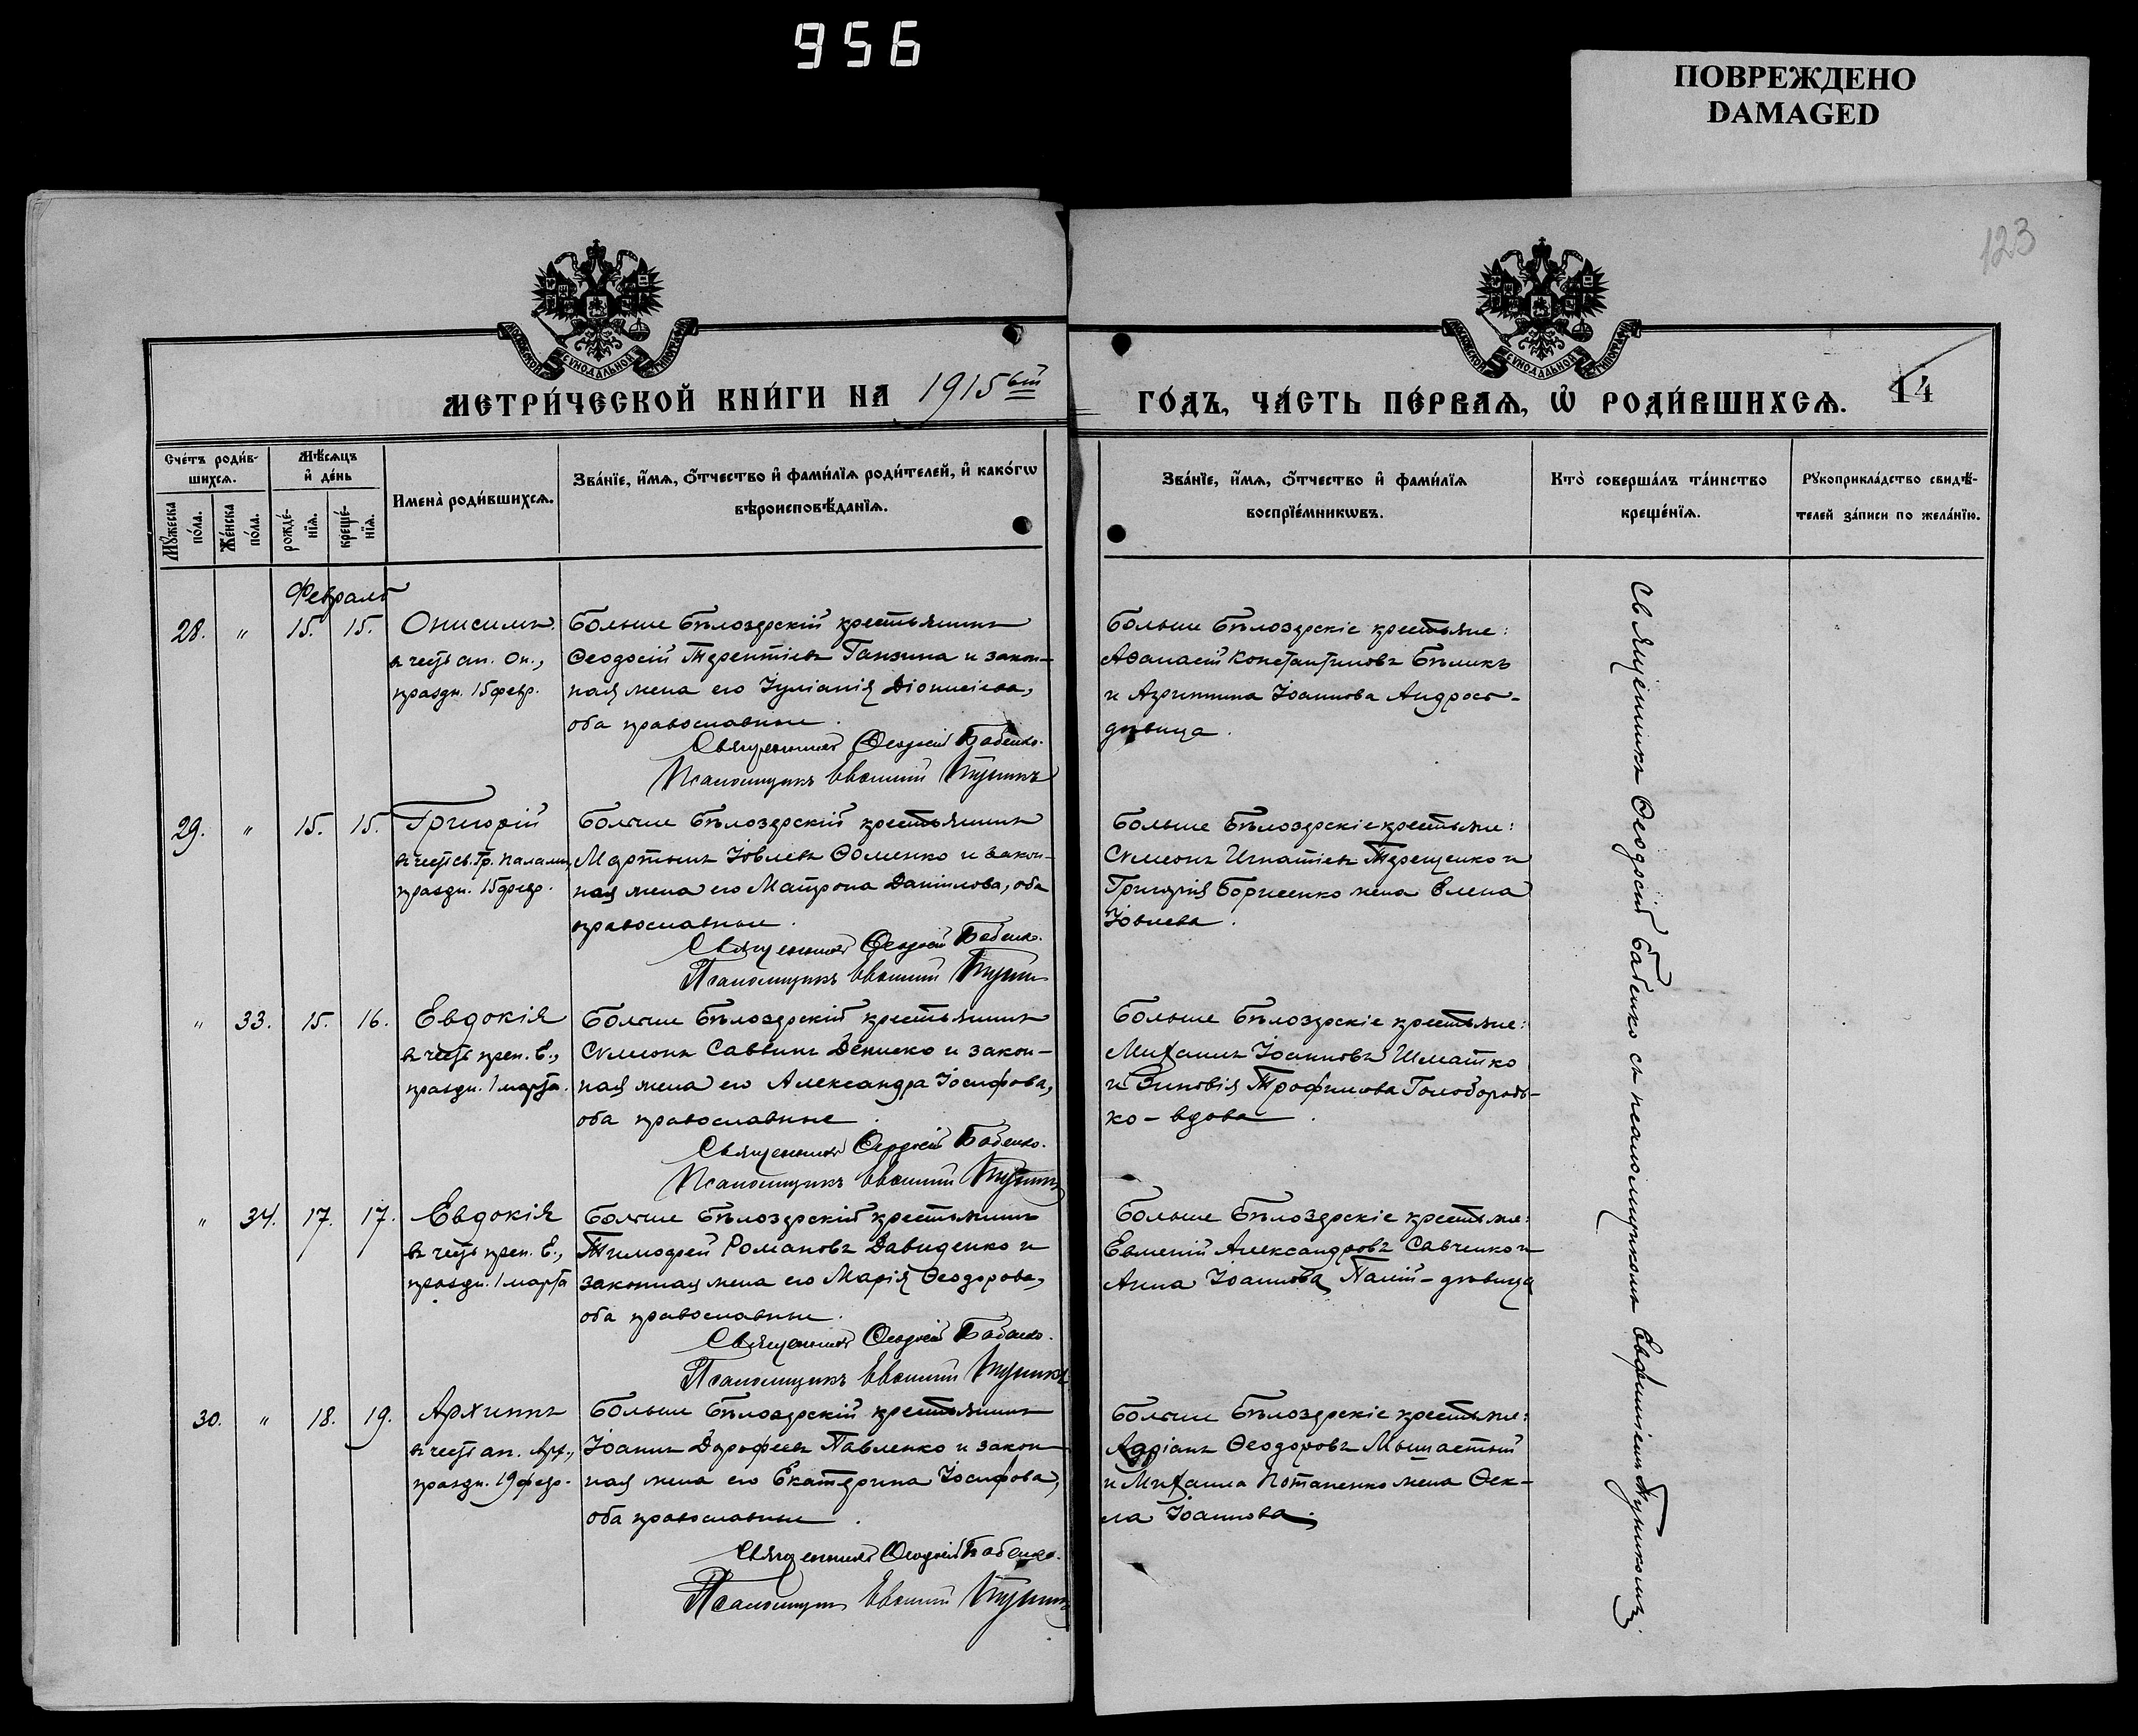 956
ПОВРЕЖДЕНО
DAMAGED
123
МОСКОВСКОЙ СѴНОДАЛЬНОЙ ТИПОГРАФІИ
МОСКОВСКОЙ СѴНОДАЛЬНОЙ ТИПОГРАФІИ
МЕТРИ́ЧЕСКОЙ КНИ́ГИ НА 1915ый
ГО́ДЪ, ЧА́СТЬ ПЕ́РВАѦ, Ѡ РОДИ́ВШИХСѦ. 14
Сче́тъ роди́в-
шихсѧ.
Мꙋ́жеска по́ла.
Же́нска по́ла.
Мѣ́сѧцъ
и҆ де́нь
рожде́-
нїѧ.
креще́-
нїѧ.
Имена̀ роди́вшихсѧ.
Зва́нїе, и҆́мѧ, ѻ҆́тчество и҆ фами́лїѧ роди́телей, и҆ како́гѡ
вѣроисповѣ́данїѧ.
Зва́нїе, и҆́мѧ, ѻ҆́тчество и҆ фами́лїѧ
воспрїе́мникѡвъ.
Кто̀ соверша́лъ та́инство
креще́нїѧ.
Рꙋкоприкла́дство свидѣ́-
телей за́писи по жела́нїю.
Февраль
28. " 15. 15. Онисимъ
в честь ап. Он.,
праздн. 15 февр.
Больше Бѣлозерскій крестьянинъ
Ѳеодосій Терентіевъ Ганзина и закон-
ная жена его Іуліанія Діонисіева,
оба православные.
Священникъ Ѳеодосій Бабенко.
Псаломщикъ Евѳимій Пуникъ
Больше Бѣлозерскіе крестьяне:
Аѳанасій Константиновъ Бѣликъ
и Агриппина Іоаннова Андрос-
дѣвица.
29. " 15. 15. Григорій
в честь св. Гр. Паламы,
праздн. 15 февр.
Больше Бѣлозерскій крестьянинъ
Мартынъ Іовлевъ Ѳоменко и закон-
ная жена его Матрона Даніилова, оба
православные.
Священникъ Ѳеодосій Бабенко.
Псаломщикъ Евѳимій Пуникъ
Больше Бѣлозерскіе крестьяне:
Сѵмеонъ Игнатіевъ Терещенко и
Григорія Борисенко жена Елена
Іовлева.
" 33. 15. 16. Евдокія
в честь преп. Е.,
праздн. 1 марта.
Больше Бѣлозерскій крестьянинъ
Сѵмеонъ Саввинъ Дениско и закон-
ная жена его Александра Іосифова,
оба православные.
Священникъ Ѳеодосій Бабенко.
Псаломщикъ Евѳимій Пуникъ
Больше Бѣлозерскіе крестьяне:
Михаилъ Іоанновъ Шматко
и Зиновія Трофимова Голобородь-
ко - вдова.
" 34. 17. 17. Евдокія
в честь преп. Е.,
праздн. 1 марта
Больше Бѣлозерскій крестьянинъ
Тимоѳей Романовъ Давиденко и
законная жена его Марія Ѳеодорова,
оба православные.
Священникъ Ѳеодосій Бабенко.
Псаломщикъ Евѳимій Пуникъ
Больше Бѣлозерскіе крестьяне:
Евменій Александровъ Савченко и
Анна Іоаннова Палій - дѣвица
30. " 18. 19. Архиппъ
в честь ап. Арх.,
праздн. 19 февр.
Больше Бѣлозерскій крестьянинъ
Іоаннъ Дорофеевъ Павленко и закон
ная жена его Екатерина Іосифова,
оба православные.
Священникъ Ѳеодосій Бабенко.
Псаломщикъ Евѳимій Пуникъ
Больше Бѣлозерскіе крестьяне:
Адріанъ Ѳеодоровъ
и Михаила Потапенко жена Ѳек-
ла Іоаннова.
Священникъ Ѳеодосій Бабенко съ псаломщикомъ Евфиміемъ Пуникомъ.